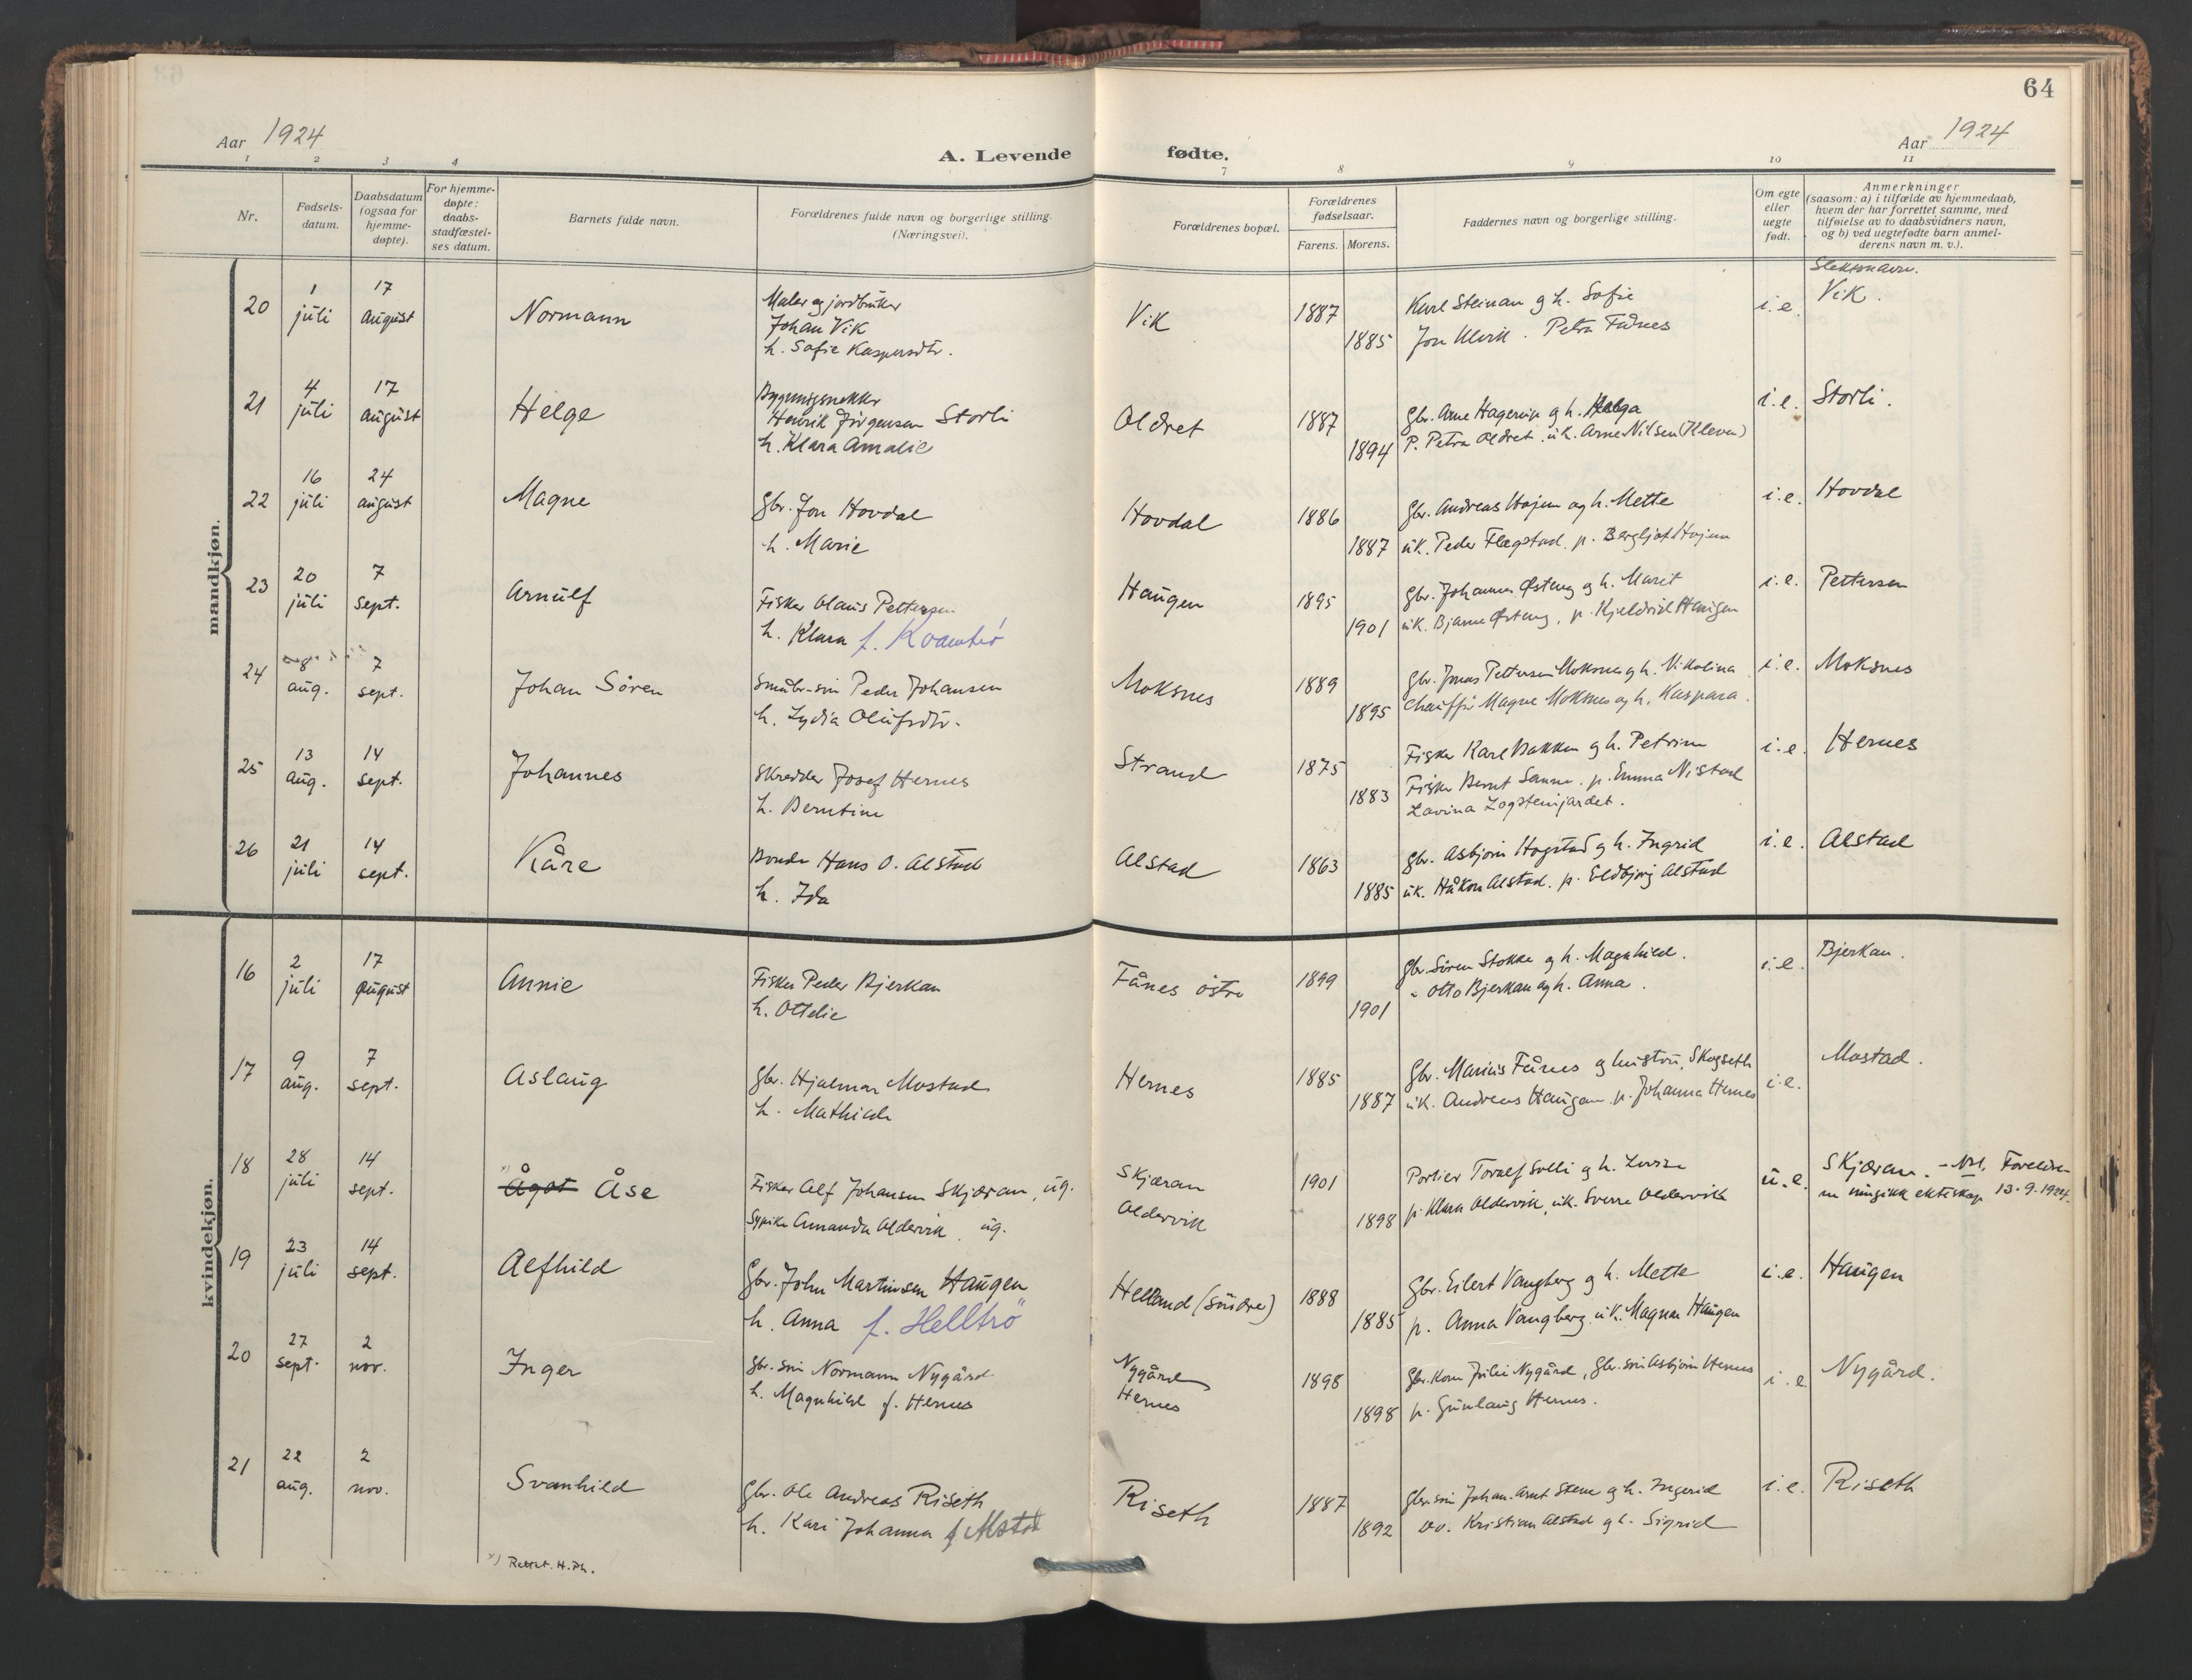 64
Aar 1924
A. Levende
fødte.
Aar 1924
1 2 3 4
7 8 9 10 11
Nr.
Fødsels-
datum.
Daabsdatum
(ogsaa for
hjemme-
døpte).
For hjemme-
døpte:
daabs-
stadfæstel-
ses datum.
Barnets fulde navn.
Forældrenes fulde navn og borgerlige stilling.
(Næringsvei).
Forældrenes bopæl.
Forældrenes
fødselsaar.
Farens. Morens.
Faddernes navn og borgerlige stilling.
Om egte
eller
uegte
født.
Anmerkninger
(saasom: a) i tilfælde av hjemmedaab,
hvem der har forrettet samme, med
tilføielse av to daabsvidners navn,
og b) ved uegtefødte barn anmel-
derens navn m. v.).
mandkjøn.
Slektsnavn.
20
1
juli
17
august
Normann
Maler og jordbruker
Johan Vik
h. Sofie Kaspersdtr.
Vik
1887
1885
Karl Steinan og h. Sofie
Jon Ulvik . Petra Fånes
i.e.
Vik.
21
4
juli
17
august
Helge
Bygningssnekker
Henrik Jörgensen Storli
h. Klara Amalie
Oldret
1887
1894
gbr. Arne Hagervik og h. Helga
P. Petra Oldret. uk. Arne Nilsen (Kleven)
i.e.
Storli.
22
16
juli
24
august
Magne
Gbr. Jon Hovdal
h. Marie
Hovdal
1886
1887
Gbr. Andreas Hojem og h. Mette
uk. Peder Flægstad. p. Bergljot Hojem
i.e.
Hovdal
23
20
juli
7
sept.
Arnulf
Fisker Olaus Pettersen
h. Klara f. Kvamtrö
Haugen
1895
1901
gbr. Johannes Østeng og h. Marit
uk. Bjarne Østeng, p. Kjeldrid Haugen
i.e.
Pettersen
24
8
aug.
7
sept.
Johan Sören
Småbr-sön Peder Johansen
h. Lydia Olufsdtr.
Moksnes
1889
1895
Gbr. Jonas Pettersen Moksnes og h. Nikolina
Chauffør Magne Moksnes og h. Kaspara.
i.e.
Moksnes
25
13
aug.
14
sept.
Johannes
Skredder Josef Hernes
h. Berntine
Strand
1875
1883
Fisker Karl Bakken og h. Petrine
Fisker Bernt Sanne. p. Emma Nistad
Lavina
i.e.
Hernes
26
21
juli
14
sept.
Kåre
Bonde Hans O. Alstad
h. Ida
Alstad
1863
1885
gbr. Asbjörn Hogstad og h. Ingrid
uk. Håkon Alstad. p. Eldbjörg Alstad
i.e.
Alstad
kvindekjøn.
16
2
juli
17
august
Annie
Fisker Peder Bjerkan
h. Ottelie
Fånes östre
1899
1901
Gbr. Sören Stokke og h. Magnhild.
" Otto Bjerkan og h. Anna.
i.e.
Bjerkan.
17
9
aug.
7
sept.
Aslaug
Gbr. Hjalmar Mostad
h. Mathilde
Hernes
1885
1887
Gbr. Marius Fånes og hustru, Skogseth
uk. Andreas Haugan p. Johanna Hernes
i.e.
Mostad.
18
28
juli
14
sept.
x) Ågot Åse
Fisker Alf Johansen Skjæran, ug.
Sypike Amanda Aldervik, ug.
Skjæran
Oldervik
1901
1898
Portier Toralf Solli og h. Lovise
p. Klara Oldervik, uk. Sverre Oldervik
u.e.
Skjæran. - Not. Foreldre-
ne inngikk ekteskap 13.9.1924.
19
23
juli
14
sept.
Alfhild
Gbr. John Martinsen Haugen
h. Anna f. Helltrö
Helland (söndre)
1888
1885
Gbr. Eilert Vangberg og h. Mette
p. Anna Vangberg. uk. Magnar Haugen
i.e.
Haugen
20
27
sept.
2
nov.
Inger
Gbr. sön Normann Nygård
h. Magnhild f. Hernes
Nygård
Hernes
1898
1898
Gbr. Kone Julie Nygård, Gbr. sön Asbjörn Hernes
p. Gunlaug Hernes.
i.e.
Nygård.
21
22
aug.
2
nov.
Svanhild
Gbr. Ole Andreas Riseth
h. Kari Johanna f Alstad
Riseth
1887
1892
Gbr. sön Johan Arnt Stene og h. Ingerid
Do. Kristian Alstad og h. Sigrid
i.e.
Riseth
x) Rettet. H. Ph.